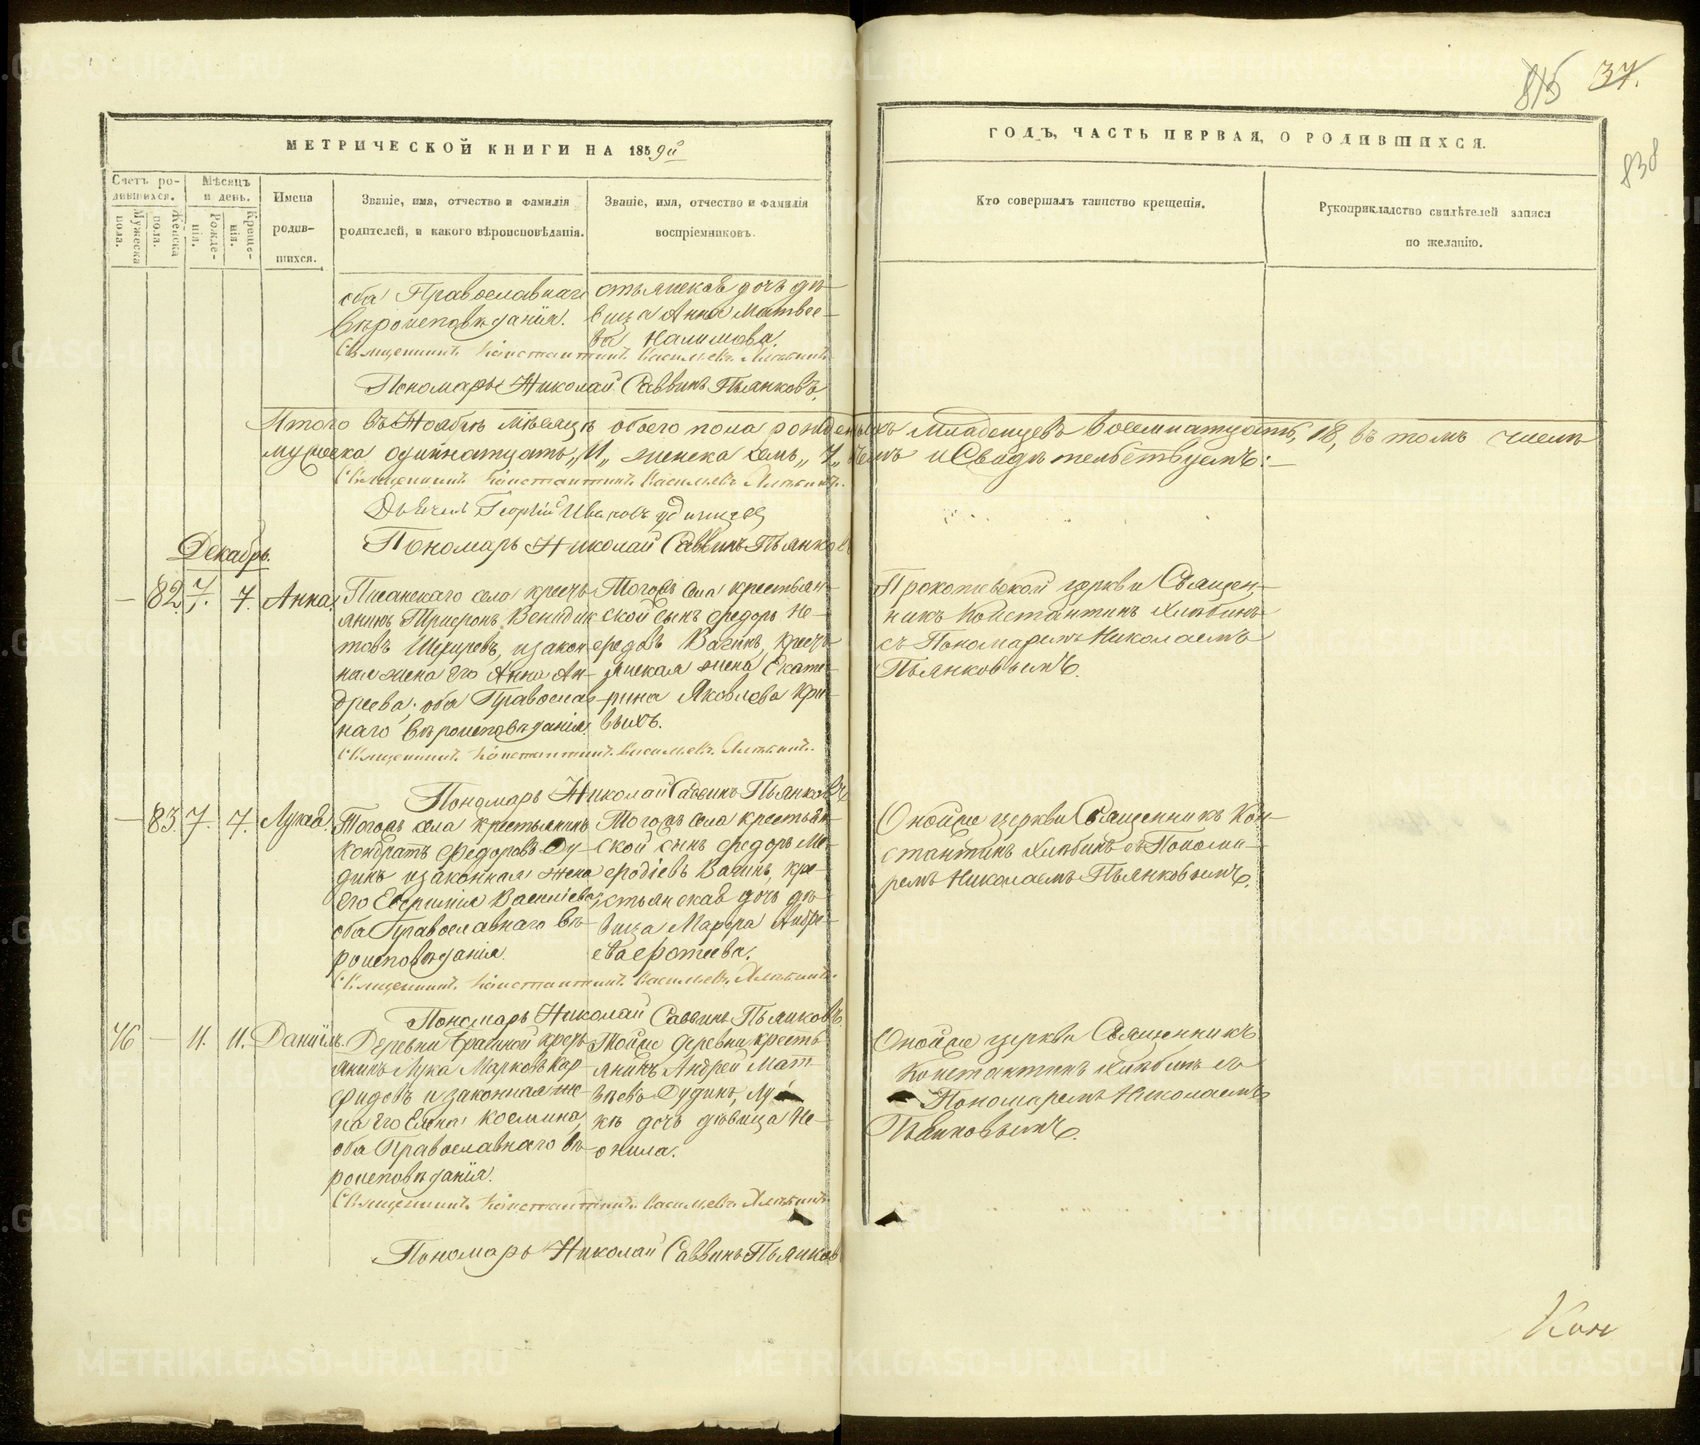 815 37.
838
МЕТРИЧЕСКОЙ КНИГИ НА 1859й
ГОДЪ, ЧАСТЬ ПЕРВАЯ, О РОДИВШИХСЯ.
Счетъ родившихся.
Мужеска пола.
Женска пола.
Мѣсяцъ и день.
Рожденія.
Крещенія.
Имена родившихся.
Званіе, имя, отчество и фамилія
родителей, и какого вѣроисповѣданія.
Званіе, имя, отчество и фамилія
воспріемниковъ.
Кто совершалъ таинство крещенія.
Рукоприкладство свидѣтелей записи
по желанію.
оба Православнаго
вѣроисповѣданія.
стьянская дочь дѣ-
вица Анна Матвее-
ва Налимова.
Священникъ Константинъ Васильевъ
Пономарь Николай Саввинъ Пьянковъ.
Итого въ Ноябрѣ мѣсяцѣ обоего пола рожденныхъ Младенцевъ восемнатцать, 18, въ томъ числѣ
мужеска одиннатцать, 11, женска семь, 7, чемъ и Свидѣтельствуемъ:
Священникъ Константинъ Васильевъ
Дьячекъ Георгій Ивановъ
Пономарь Николай Саввинъ Пьянковъ
Декабрь.
— 82. 7. 7. Анна.
Писанскаго села кресть-
янинъ Трифонъ Венидик-
товъ и закон-
ная жена его Анна Ан-
дреева, оба Православ-
наго вѣроисповѣданія.
Тогожъ села крестьян-
ской сынъ Федоръ Не-
федовъ Вагинъ, кресть-
янская жена Екате-
рина Яковлева Кри-
выхъ.
Прокопьевской церкви Священ-
никъ Константинъ Хлѣбинъ
съ Пономаремъ Николаемъ
Пьянковымъ.
Священникъ Константинъ Васильевъ
Пономарь Николай Саввинъ Пьянковъ
— 83 7. 7. Лукія.
Тогожъ села крестьянинъ
Кондратъ Федоровъ Ду-
динъ и законная жена
его Евфимія Васильева,
оба Православнаго вѣ-
роисповѣданія.
Тогожъ села крестьян-
ской сынъ Федоръ Ме-
фодіевъ Вагинъ, кре-
стьянская дочь дѣ-
вица Марфа Андре-
ева Фотеева.
Оной же церкви Священникъ Кон-
стантинъ Хлѣбинъ съ Понома-
ремъ Николаемъ Пьянковымъ.
Священникъ Константинъ Васильевъ
Пономарь Николай Саввинъ Пьянковъ
76 — 11. 11. Даніилъ.
Деревни кресть-
янинъ Лука Марковъ
и законная же-
на его Елена Космина,
оба Православнаго вѣ-
роисповѣданія.
Той же деревни кресть-
янинъ Андрей Мат-
вѣевъ Дудинъ,
дочь дѣвица Не-
онила.
Оной же церкви Священникъ
Константинъ Хлѣбинъ съ
Пономаремъ Николаемъ
Пьянковымъ.
Священникъ Константинъ Васильевъ
Пономарь Николай Саввинъ Пьянковъ
METRIKI.GASO-URAL.RU